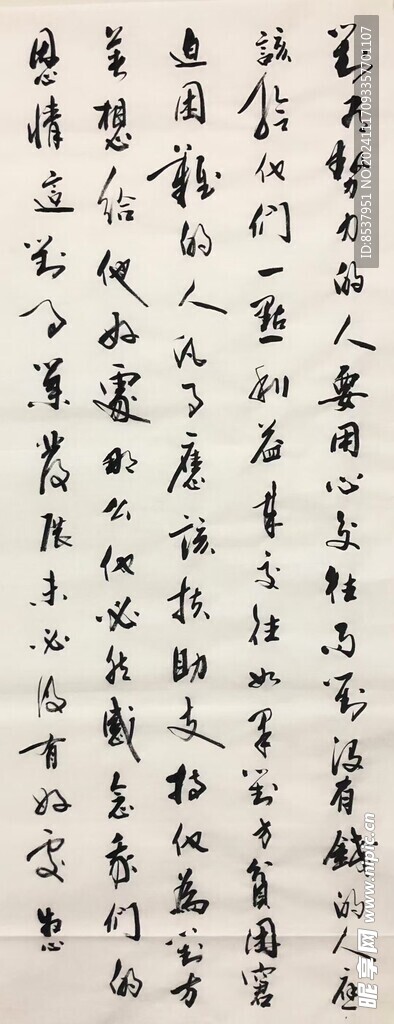 對於努力的人要用心交往而對沒有錢的人應
該給他們一點利益來交往如果對方貧困窘
迫困難的人凡事應該扶助支持他為對方
著想給他好處那么他必然感念我們的
恩情這對事業發展未必沒有好處
ID:8537951 NO:20241117093357701107
昵享网 www.nipic.cn